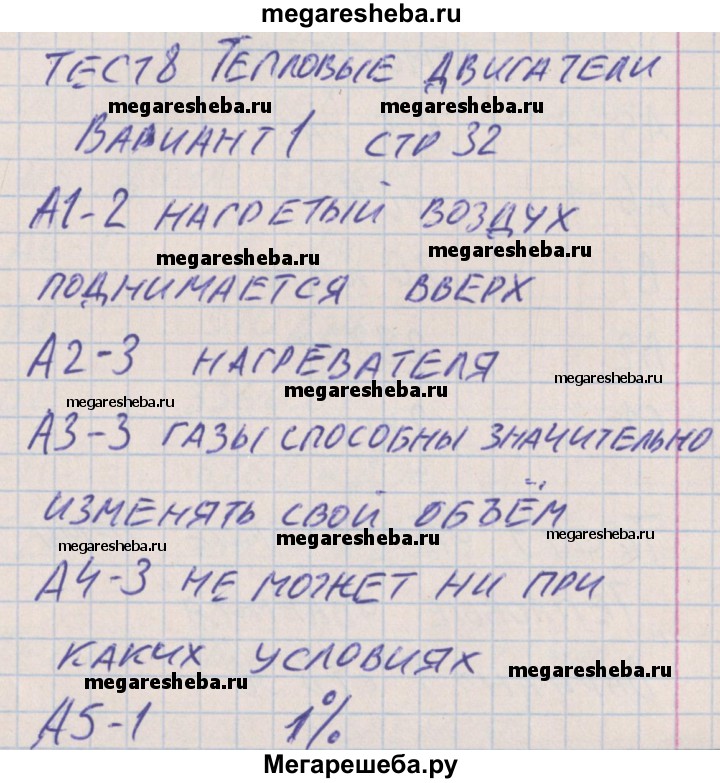 megaresheba.ru
ТЕСТ 8 ТЕПЛОВЫЕ ДВИГАТЕЛИ
megaresheba.ru megaresheba.ru
ВАРИАНТ 1 СТР 32
А1-2 НАГРЕТЫЙ ВОЗДУХ
megaresheba.ru megaresheba.ru
ПОДНИМАЕТСЯ ВВЕРХ
А2-3 НАГРЕВАТЕЛЯ
megaresheba.ru megaresheba.ru megaresheba.ru
А3-3 ГАЗЫ СПОСОБНЫ ЗНАЧИТЕЛЬНО
ИЗМЕНЯТЬ СВОЙ ОБЪЁМ
megaresheba.ru megaresheba.ru megaresheba.ru
А4-3 НЕ МОЖЕТ НИ ПРИ
КАКИХ УСЛОВИЯХ
megaresheba.ru megaresheba.ru
А5-1 1%
Мегарешеба.ру